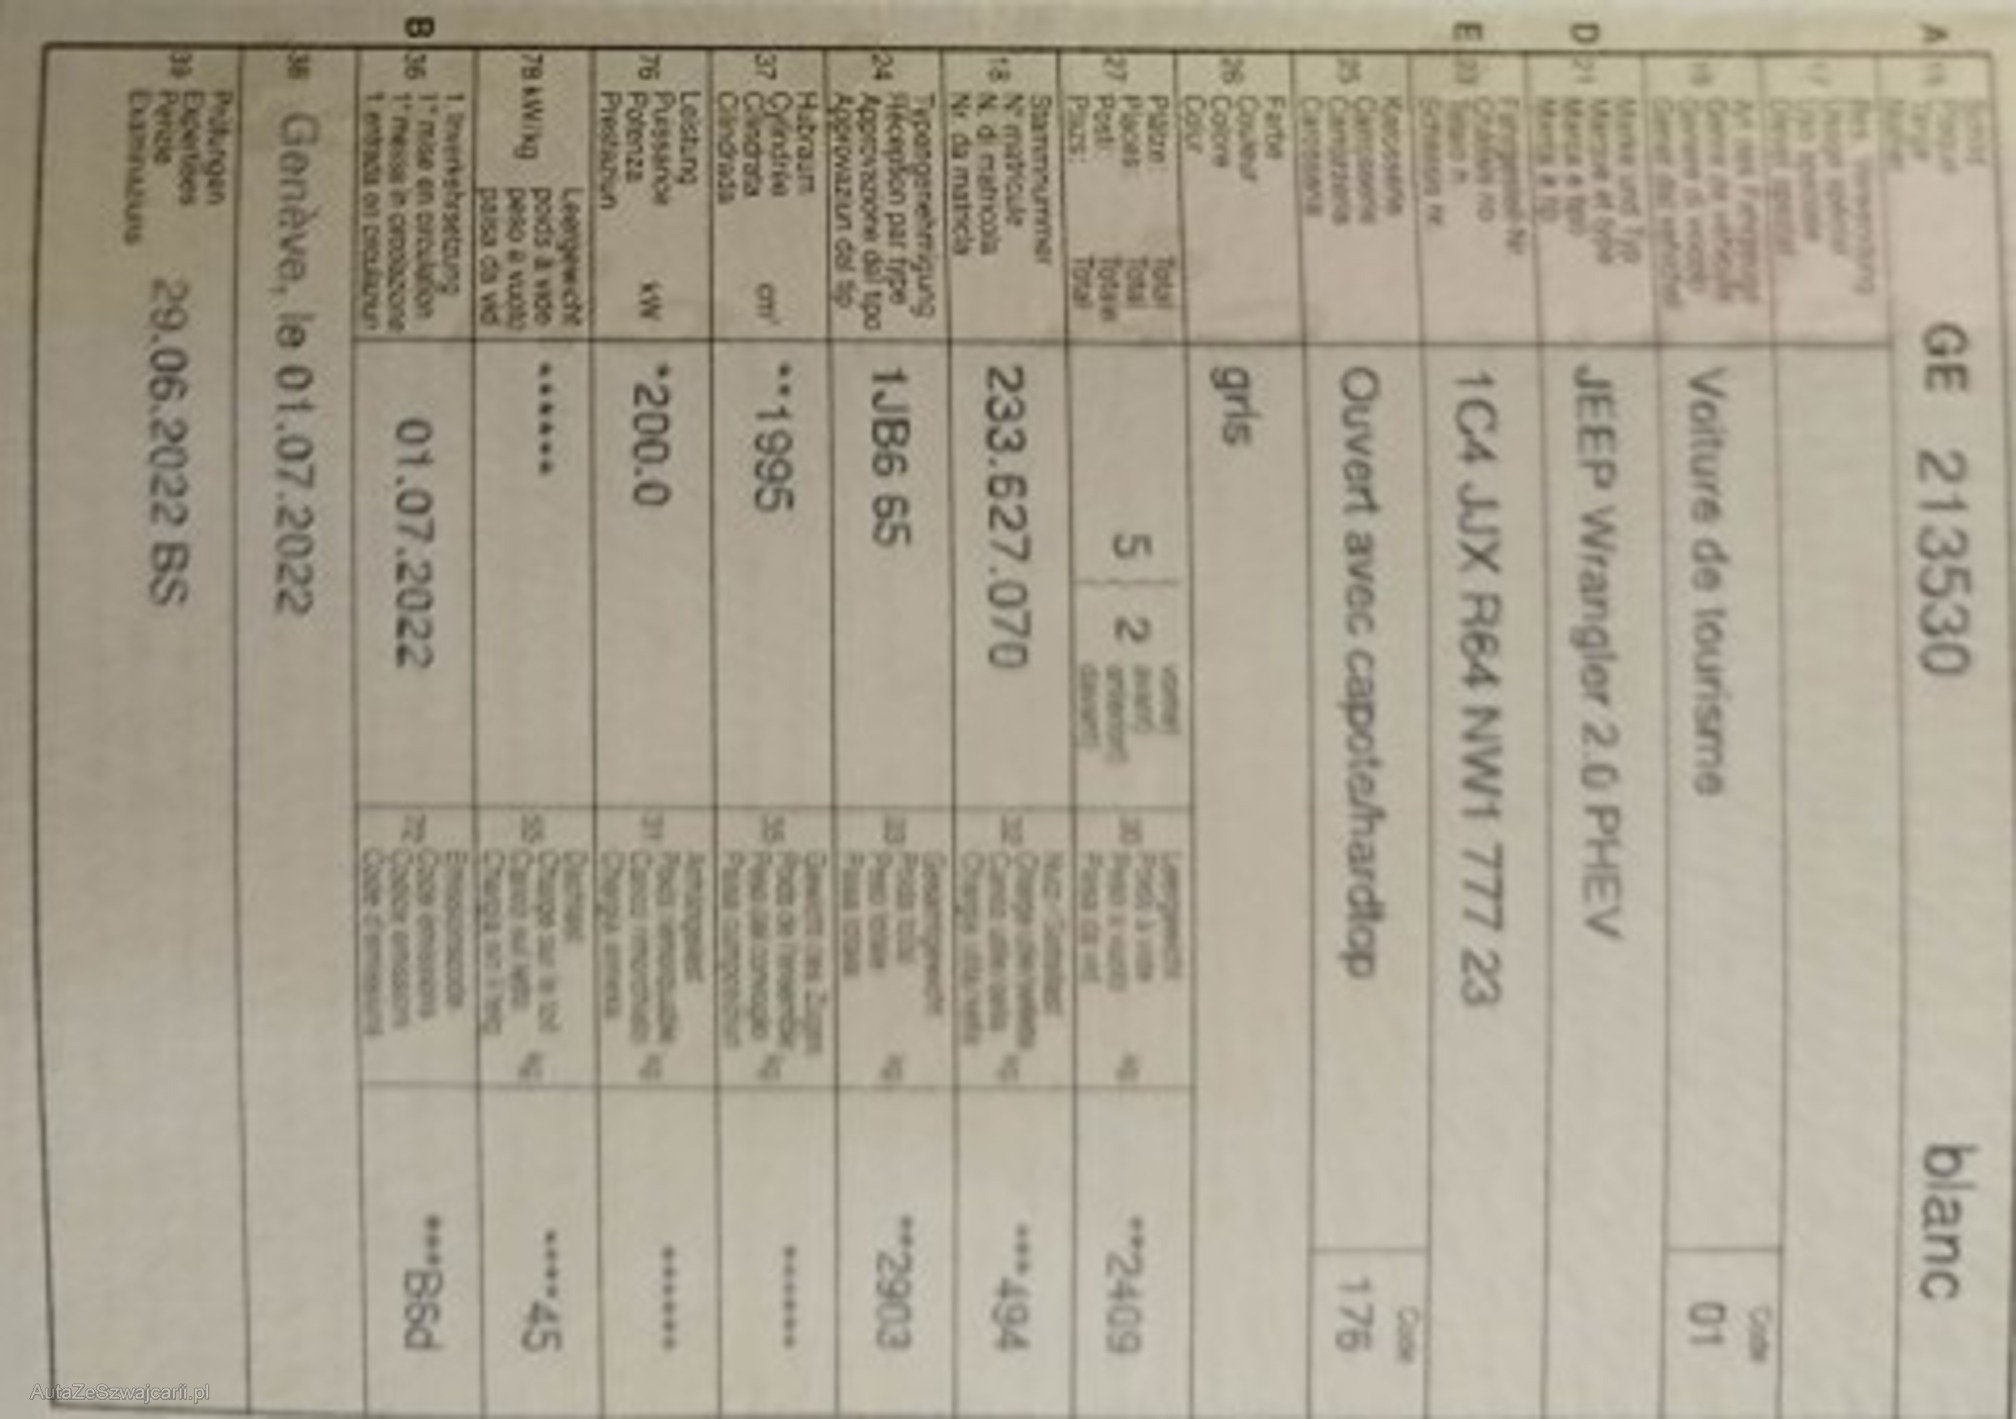 A 15 Schild
Plaque
Targa
Numer
GE 213530 blanc
17 Bes. Verwendung
Usage spécial
Uso speciale
Diever spezial
19 Art des Fahrzeugs
Genre de véhicule
Genere di veicolo
Gener dal vehichel
Voiture de tourisme
Code
01
D 21 Marke und Typ
Marque et type
Marca e tipo
Marca e tip
JEEP Wrangler 2.0 PHEV
E 23 Fahrgestell-Nr.
Châssis no
Telaio n.
Schassis nr.
1C4 JJX R64 NW1 777 23
25 Karosserie
Carrosserie
Carrozzeria
Carossaria
Ouvert avec capote/hardtop
Code
176
26 Farbe
Couleur
Colore
Colur
gris
27 Plätze: Total
Places: Total
Posti: Totale
Plazs: Total
5 2
vorne)
avant)
anteriori)
davant)
30 Leergewicht
Poids à vide
Peso a vuoto
Paisa da vid
kg
**2409
18 Stammnummer
N° matricule
N. di matricola
Nr. da matricla
233.627.070
32 Nutz-/Sattellast
Charge utile/sellette
Carico utile/sella
Chargia utila/sella
kg
***494
24 Typengenehmigung
Réception par type
Approvazione del tipo
Approvaziun dal tip
1JB6 65
33 Gesamtgewicht
Poids total
Peso totale
Paisa totala
kg
**2903
37 Hubraum
Cylindrée
Cilindrata
Cilindrada
cm³
**1995
35 Gewicht des Zuges
Poids de l'ensemble
Peso del convoglio
Paisa cumposiziun
kg
******
76 Leistung
Puissance
Potenza
Prestaziun
kW
*200.0
31 Anhängelast
Poids remorquable
Carico rimorchiato
Chargia annexa
kg
******
78 kW/kg
Leergewicht
poids à vide
peso a vuoto
paisa da vid
******
55 Dachlast
Charge sur le toit
Carico sul tetto
Chargia sin il tetg
kg
****45
B 36 1. Inverkehrsetzung
1re mise en circulation
1a messa in circolazione
1. entrada en circulaziun
01.07.2022
72 Emissionscode
Code émissions
Codice emissioni
Code d'emissiuns
***B6d
38 Genève, le 01.07.2022
39 Prüfungen
Expertises
Perizie
Examinaziuns
29.06.2022 BS
AutaZeSzwajcarii.pl